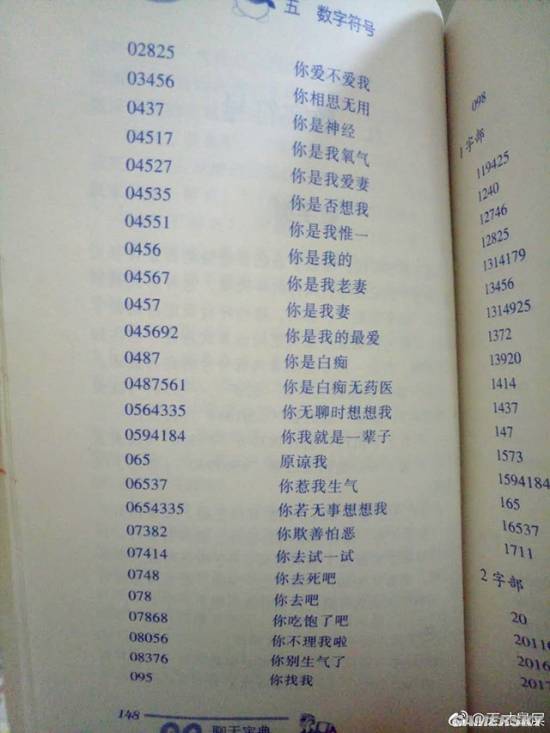 五 数字符号
02825 你爱不爱我
03456 你相思无用
0437 你是神经
04517 你是我氧气
04527 你是我爱妻
04535 你是否想我
04551 你是我惟一
0456 你是我的
04567 你是我老妻
0457 你是我妻
045692 你是我的最爱
0487 你是白痴
0487561 你是白痴无药医
0564335 你无聊时想想我
0594184 你我就是一辈子
065 原谅我
06537 你惹我生气
0654335 你若无事想想我
07382 你欺善怕恶
07414 你去试一试
0748 你去死吧
078 你去吧
07868 你吃饱了吧
08056 你不理我啦
08376 你别生气了
095 你找我
148 聊天字典
098
1字部
119425
1240
12746
12825
1314179
13456
1314925
1372
13920
1414
1437
147
1573
1594184
165
16537
1711
2字部
20
GAMERSKY